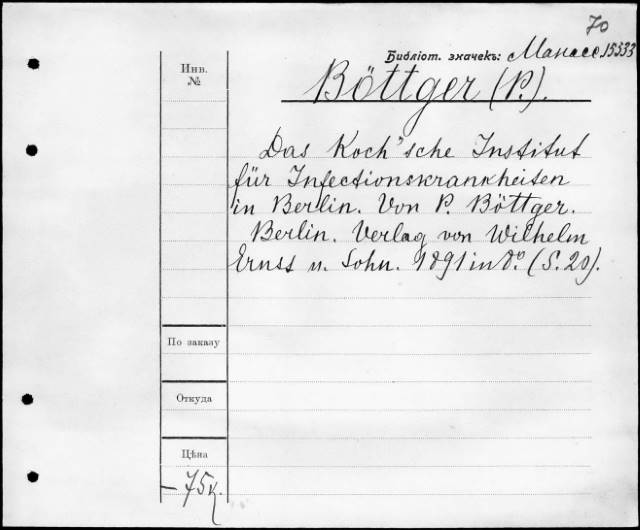 70
Библіот. значекъ: Манасс. 15533
Инв.
№
Böttger (P.).
Das Koch'sche Institut
für Infectionskrankheiten
in Berlin. Von P. Böttger.
Berlin. Verlag von Wilhelm
Ernst u. Sohn. 1891 in 8°. (S. 20).
По заказу
Откуда
Цѣна
– 75 к.